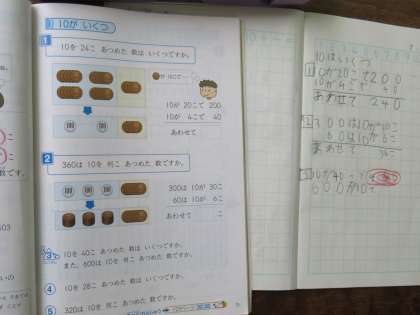 10が いくつ
1
10を 24こ あつめた 数は いくつですか。
10が 20こで 200
10が 4こで 40
あわせて
2
360は 10を 何こ あつめた 数ですか。
300は10が 30こ
60は10が 6こ
あわせて こ
3
10を 40こ あつめた 数は いくつですか。
また、600は 10を 何こ あつめた 数ですか。
4
10を 28こ あつめた 数は いくつですか。
5
320は 10を 何こ あつめた 数ですか。
10はいくつ
1
10が20こで200
10が4こで 40
あわせて 240
2
300は10が30こ
60は10が6こ
あわせて
3
10が40こで
600が10で